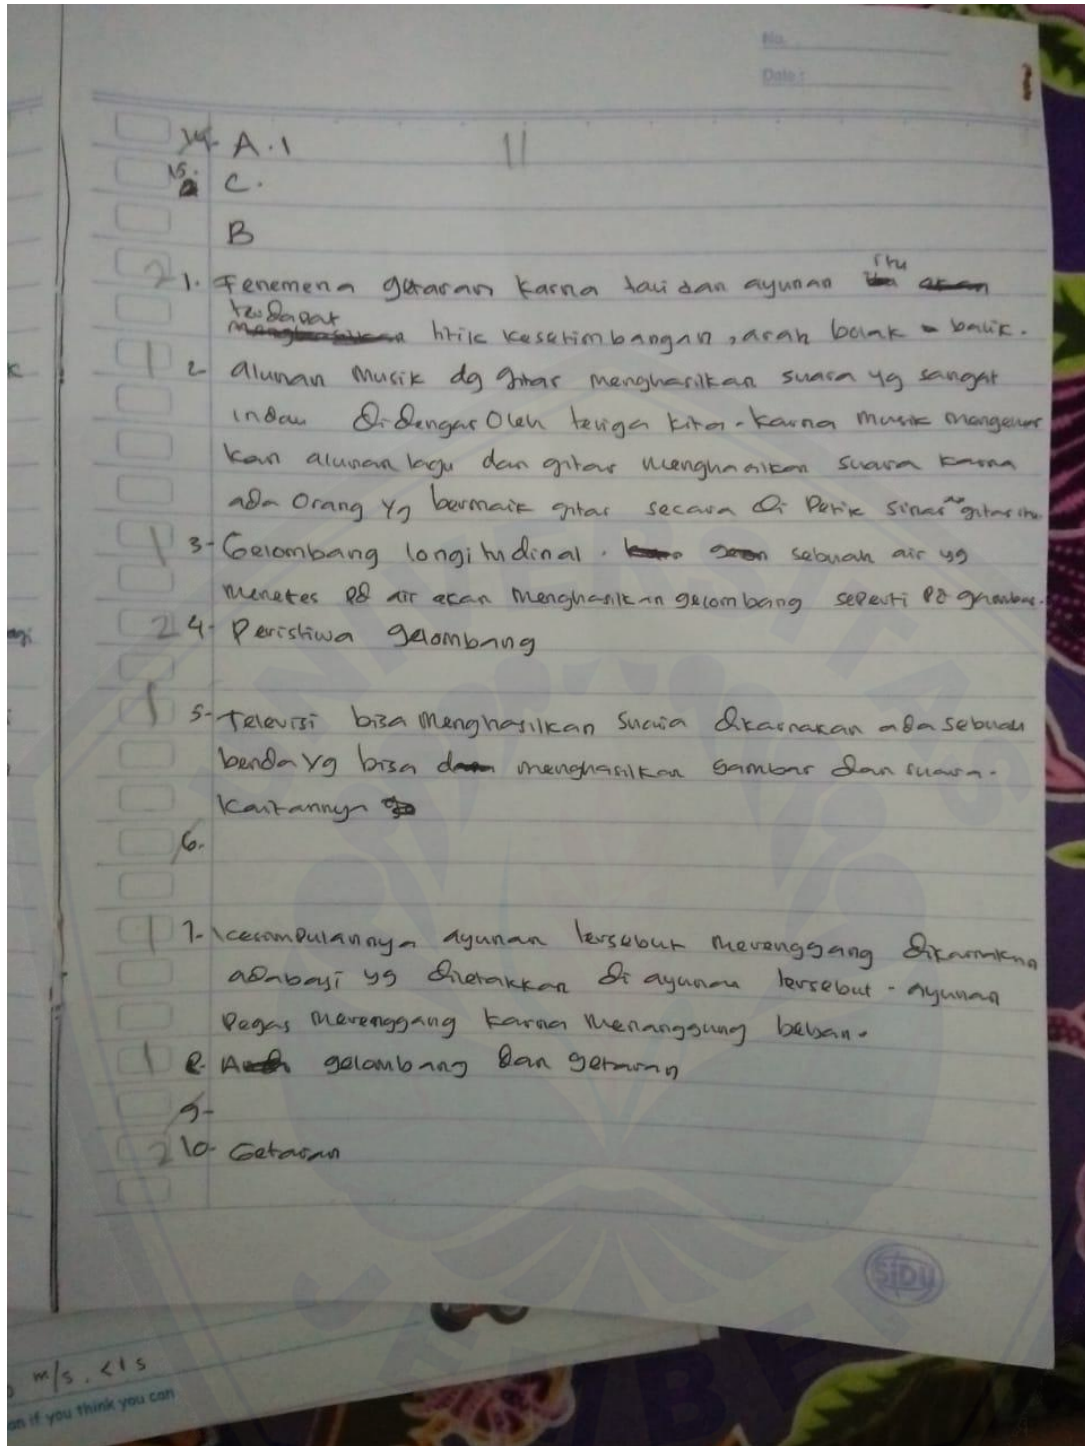 No.
Date :
14. A. 1
11
15. C.
B
2 1. Fenemena getaran karna tali dan ayunan itu
terdapat titik kesetimbangan, arah bolak - balik.
1 2. alunan musik dg gitar menghasilkan suara yg sangat
indau didengar oleh teliga kita. karna musik mengeluar
kan alunan lagu dan gitar menghasilkan suara karna
ada orang yg bermaik gitar secara di Petik gitar itu
1 3- Gelombang longitudinal. sebuah air yg
menetes pd air akan menghasilkan gelombang seperti pd
2 4- Peristiwa gelombang
1 5- Televisi bisa menghasilkan suara dikarnakan ada sebuah
benda yg bisa menghasilkan gambar dan suara.
Kaitannya
6.
1 7- kesimpulannya ayunan tersebut merenggang dikarnakna
ada bayi yg diletakkan di ayunan tersebut - ayunan
Pegas merenggang karna menanggung beban.
1 8. gelombang dan getaran
9-
2 10- Getaran
SiDU
m/s. <1s
an if you think you can
UNIVERSITAS
JEMBER